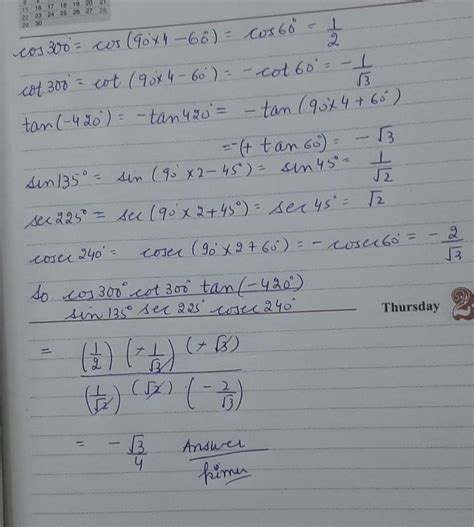 15 16 17 18 19 20 21
22 23 24 25 26 27 28
29 30
cos300° = cos(90°×4-60°) = cos60° = 1/2
cot300° = cot(90°×4-60°) = -cot60° = -1/√3
tan(-420°) = -tan420° = -tan(90°×4+60°)
= -(+tan60°) = -√3
sin135° = sin(90°×2-45°) = sin45° = 1/√2
sec225° = sec(90°×2+45°) = sec45° = √2
cosec240° = cosec(90°×2+60°) = -cosec60° = -2/√3
So, cos300° cot300° tan(-420°)
sin135° sec225° cosec240°
Thursday 2
= (1/2) (-1/√3) (-√3)
(1/√2) (√2) (-2/√3)
= -√3/4 Answer